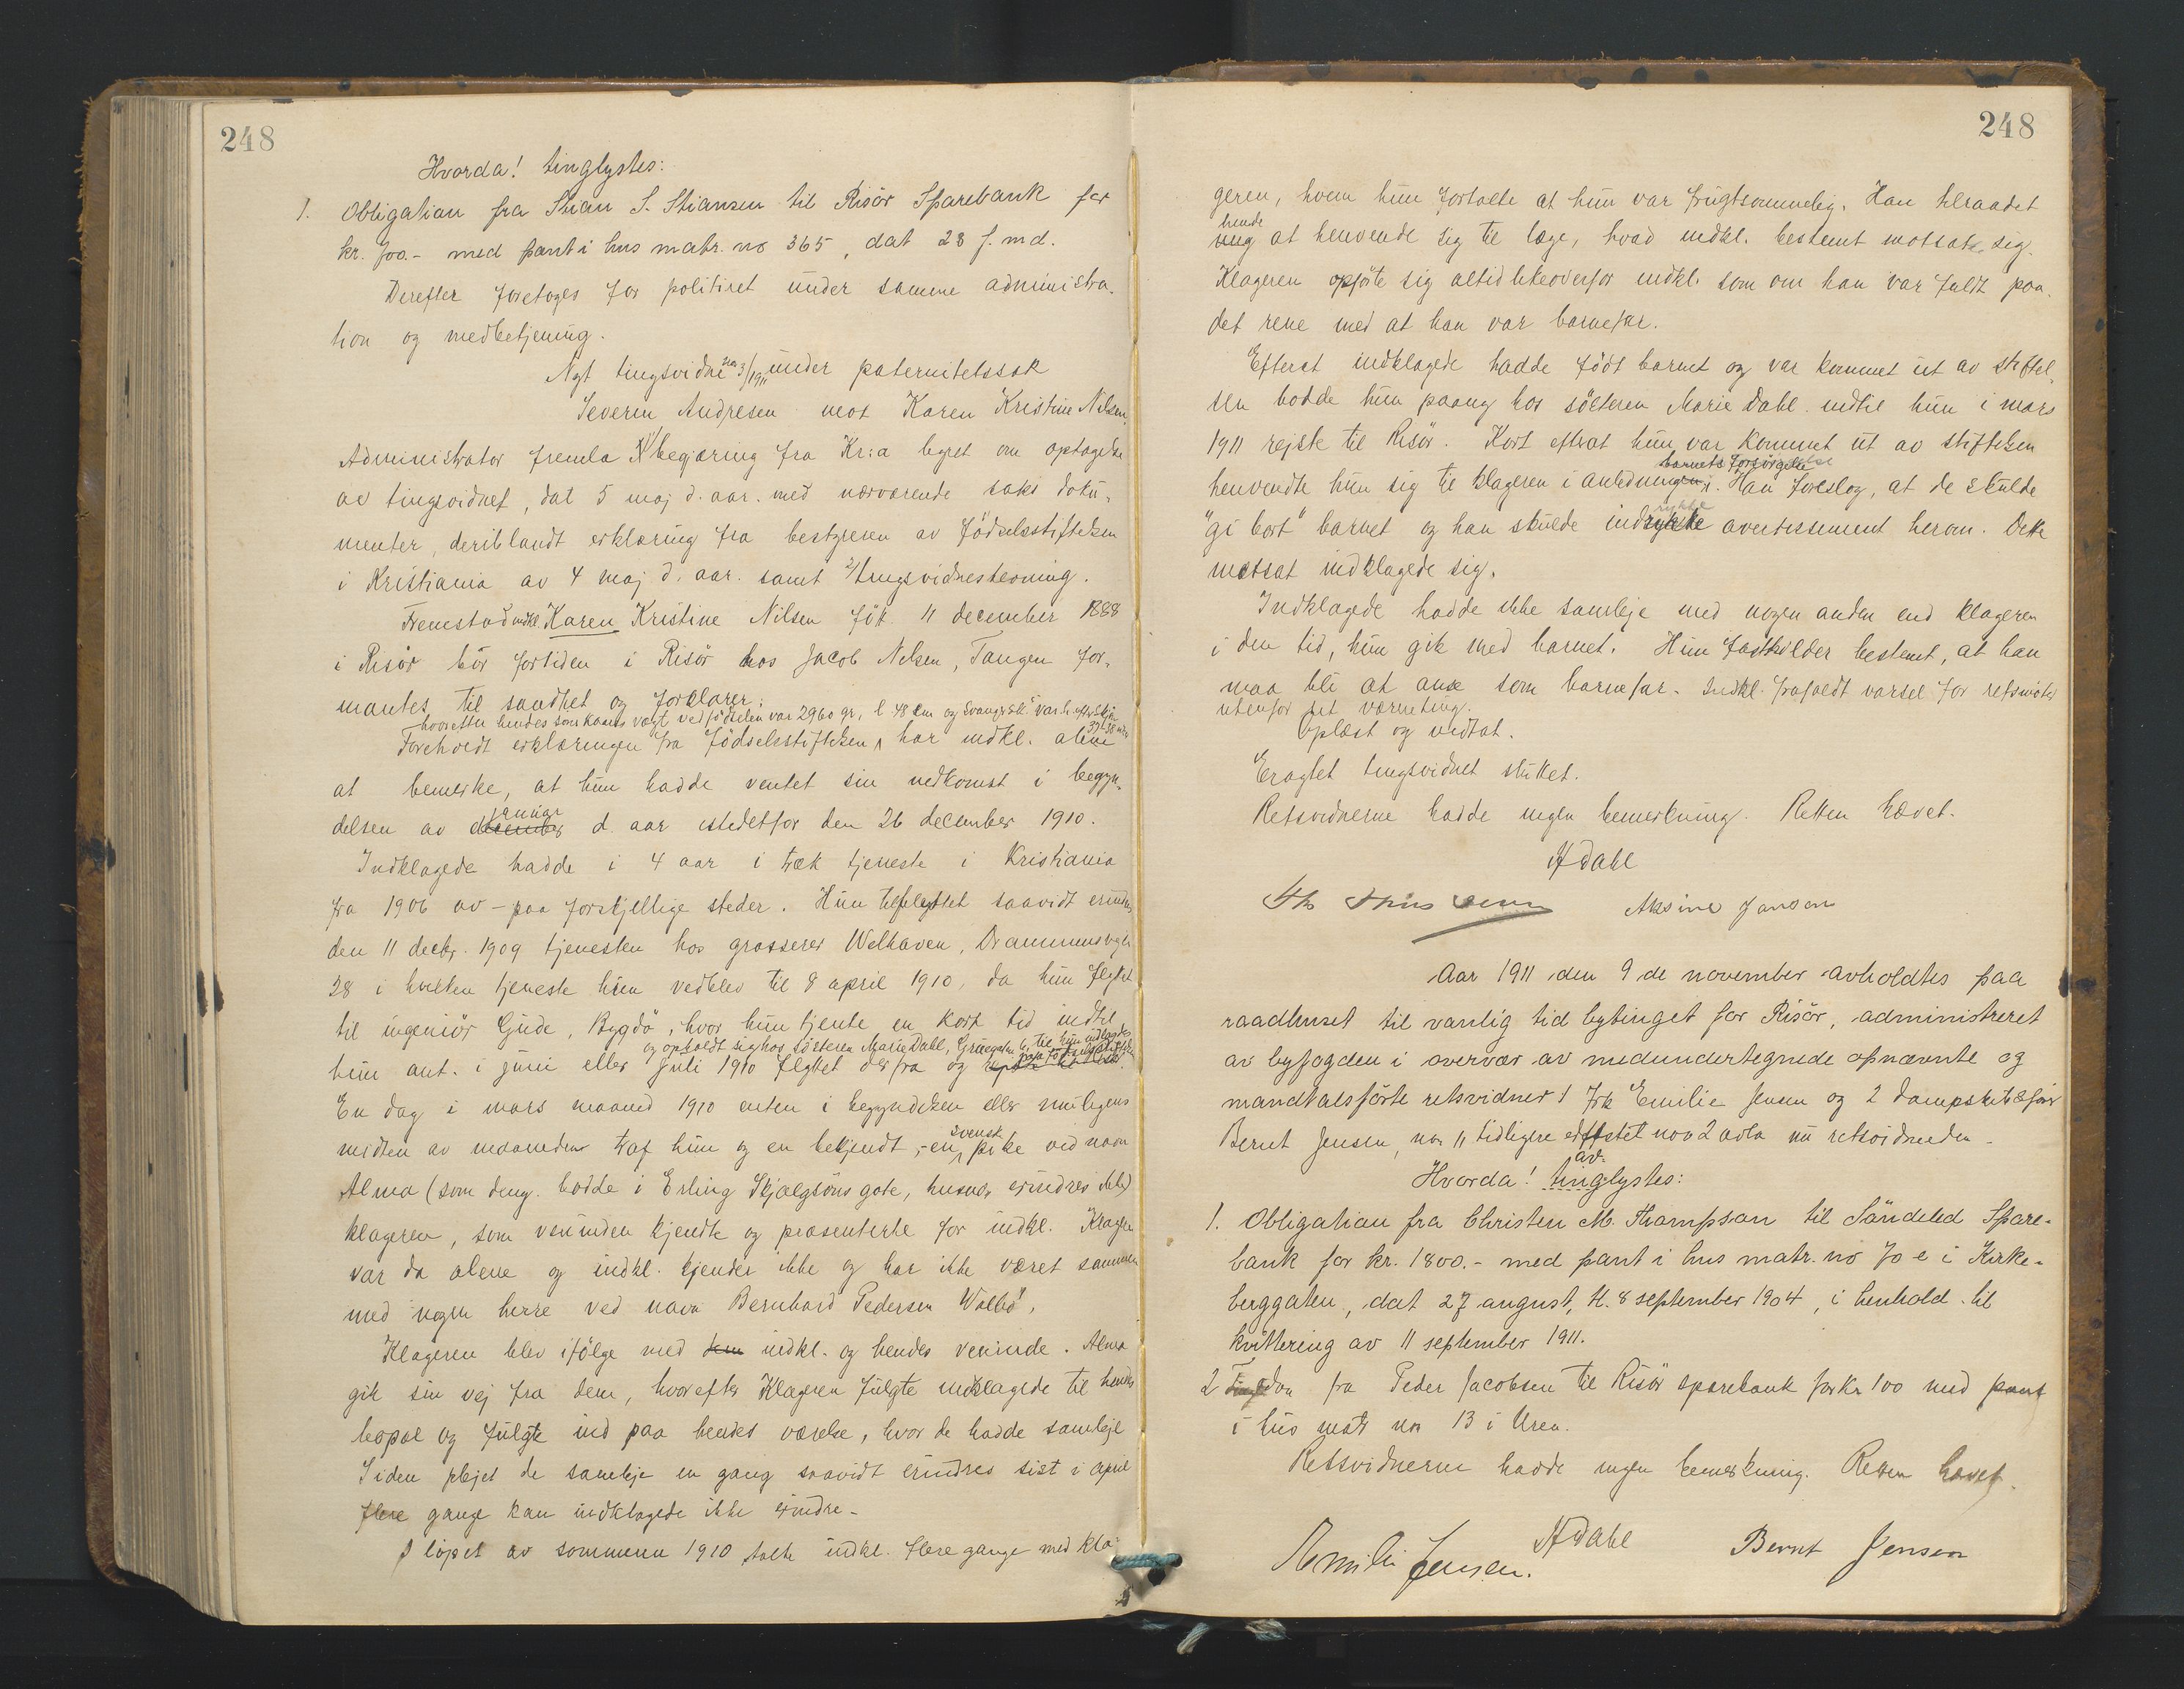 248
Hvorda! tinglystes:
1. Obligation fra Stian S. Stiansen til Risör Sparebank for
kr. 700.- med pant i hus matr. no 365, dat 23 f. md.
Derefter foretoges for politiret under samme administra-
tion og medbetjening.
Nyt tingsvidne no 3/1911 under paternitetssak
Severin Andresen mot Karen Kristine Nilsen.
Administrator fremla 1/ begjæring fra Kr:a byret om optagelse
av tingsvidnet, dat 5 maj d. aar. med nærværende saks doku-
menter, deriblandt erklæring fra bestyreren av Födselsstiftelsen
i Kristiania av 4 maj d. aar. samt 2/ tingsvidnestevning.
Fremstod indkl. Karen Kristine Nilsen föt. 11 december 1888
i Risör bör fortiden i Risör hos Jacob Nilsen, Tangen for-
mantes til sandhet og forklarer:
hvorefter hendes söns kands vægt ved födselen var 2960 gr, l. 48 cm og Svangersk. var h. efter Skjön 37-38 uker
Foreholdt erklæringen fra Födselsstiftelsen, har indkl. alene
at bemerke, at hun hadde ventet sin nedkomst i begyn-
januar
delsen av december d. aar istedetfor den 26 december 1910.
Indklagede hadde i 4 aar i træk tjeneste i Kristiania
fra 1906 av - paa forskjellige steder. Hun tilflyttet saavidt erindres
den 11 decbr. 1909 tjenesten hos grosserer Welhaven, Drammensvejen
28 i hvilken tjeneste hun vedblev til 8 april 1910, da hun flyttet
til ingeniör Gude, Bygdö, hvor hun tjente en kort tid indtil
og opholdt sig hos sösteren Marie Dahl, Grünergaten 6, til hun indlagdes paa Födselsstiftelsen
hun ant. i juni eller juli 1910 flyttet derfra og rejste til Risör.
En dag i mars maaned 1910 enten i begyndelsen eller muligens
svensk
midten av maaneden traf hun og en bekjendt, - en pike ved navn
Alma (som deng. bodde i Erling Skjalgsöns gate, husno. erindres ikke)
klageren, som veninden kjendte og præsenterte for indkl. Klageren
var da alene og indkl. kjender ikke og har ikke været sammen
med nogen herre ved navn Bernhard Pedersen Walbö.
Klageren blev ifölge med dem indkl. og hendes veninde. Alma
gik sin vej fra dem, hvorefter Klageren fulgte indklagede til hendes
bopæl og fulgte ind paa hendes værelse, hvor de hadde samleje
Siden plejet de samleje en gang saavidt erindres sist i april
flere gange kan indklagede ikke erindre.-
I löpet av sommeren 1910 talte indkl. flere gange med kla-
248
geren, hvem hun fortalte at hun var frugtsommelig. Han tilraadet
hende
at henvende sig til læge, hvad indkl. bestemt motsatte sig.
Klageren opförte sig altid likeoverfor indkl. som om han var fuldt paa
det rene med at han var barnefar.
Efterat indklagede hadde födt barnet og var kommet ut av stiftel-
sen bodde hun paany hos sösteren Marie Dahl indtil hun i mars
1911 rejste til Risör. Kort efterat hun var kommet ut av stiftelsen
barnets forsörgelse
henvendte hun sig til klageren i anledningen. Han foreslog, at de skulde
"gi bort" barnet og han skulde indrykke avertissement herom. Dette
motsat indklagede sig.
Indklagede hadde ikke samleje med nogen anden end klageren
i den tid, hun gik med barnet. Hun fastholder bestemt, at han
maa bli at anse som barnefar. Indkl. frafaldt varsel for retsmöter
utenfor sit værneting.
Oplæst og vedtat.
Eragtet tingsvidnet sluttet.
Retsvidnerne hadde ingen bemerkning. Retten hævet.
H Dahl
Aksine Jansen
Aar 1911 den 9 de november avholdtes paa
raadhuset til vanlig tid bytinget for Risör, administreret
av byfogden i overvær av medundertegnede opnævnte og
mandtalsförte retsvidner 1 Frk Emilie Jensen og 2 Dampskibsförer
Bernt Jensen, no 1 tidligere edfæstet no 2 avla nu retsvidneeden.-
av-
Hvorda! tinglystes:
1. Obligation fra Christen M. Thompson til Söndeled Spare-
bank for kr. 1800.- med pant i hus matr. no 70 e i Kirke-
berggaten, dat 27 august, tl. 8 september 1904, i henhold til
kvittering av 11 september 1911.
2 fra Peder Jacobsen til Risör sparebank for kr 100 med pant
i hus matr no 13 i Uren.
Retsvidnerne hadde ingen bemerkning. Retten hævet.
H Dahl
Emilie Jensen.
Bernt Jensen